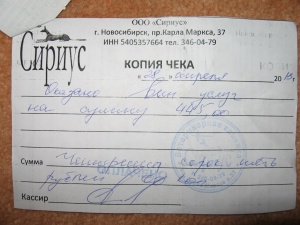 ООО «Сириус»
г. Новосибирск, пр.Карла Маркса, 37
ИНН 5405357664 тел. 346-04-79
Сириус
КОПИЯ ЧЕКА
апреля 201
Оказано услуг
на сумму 445,00
Сумма Четыреста сорок пять
рублей 00 коп
Кассир